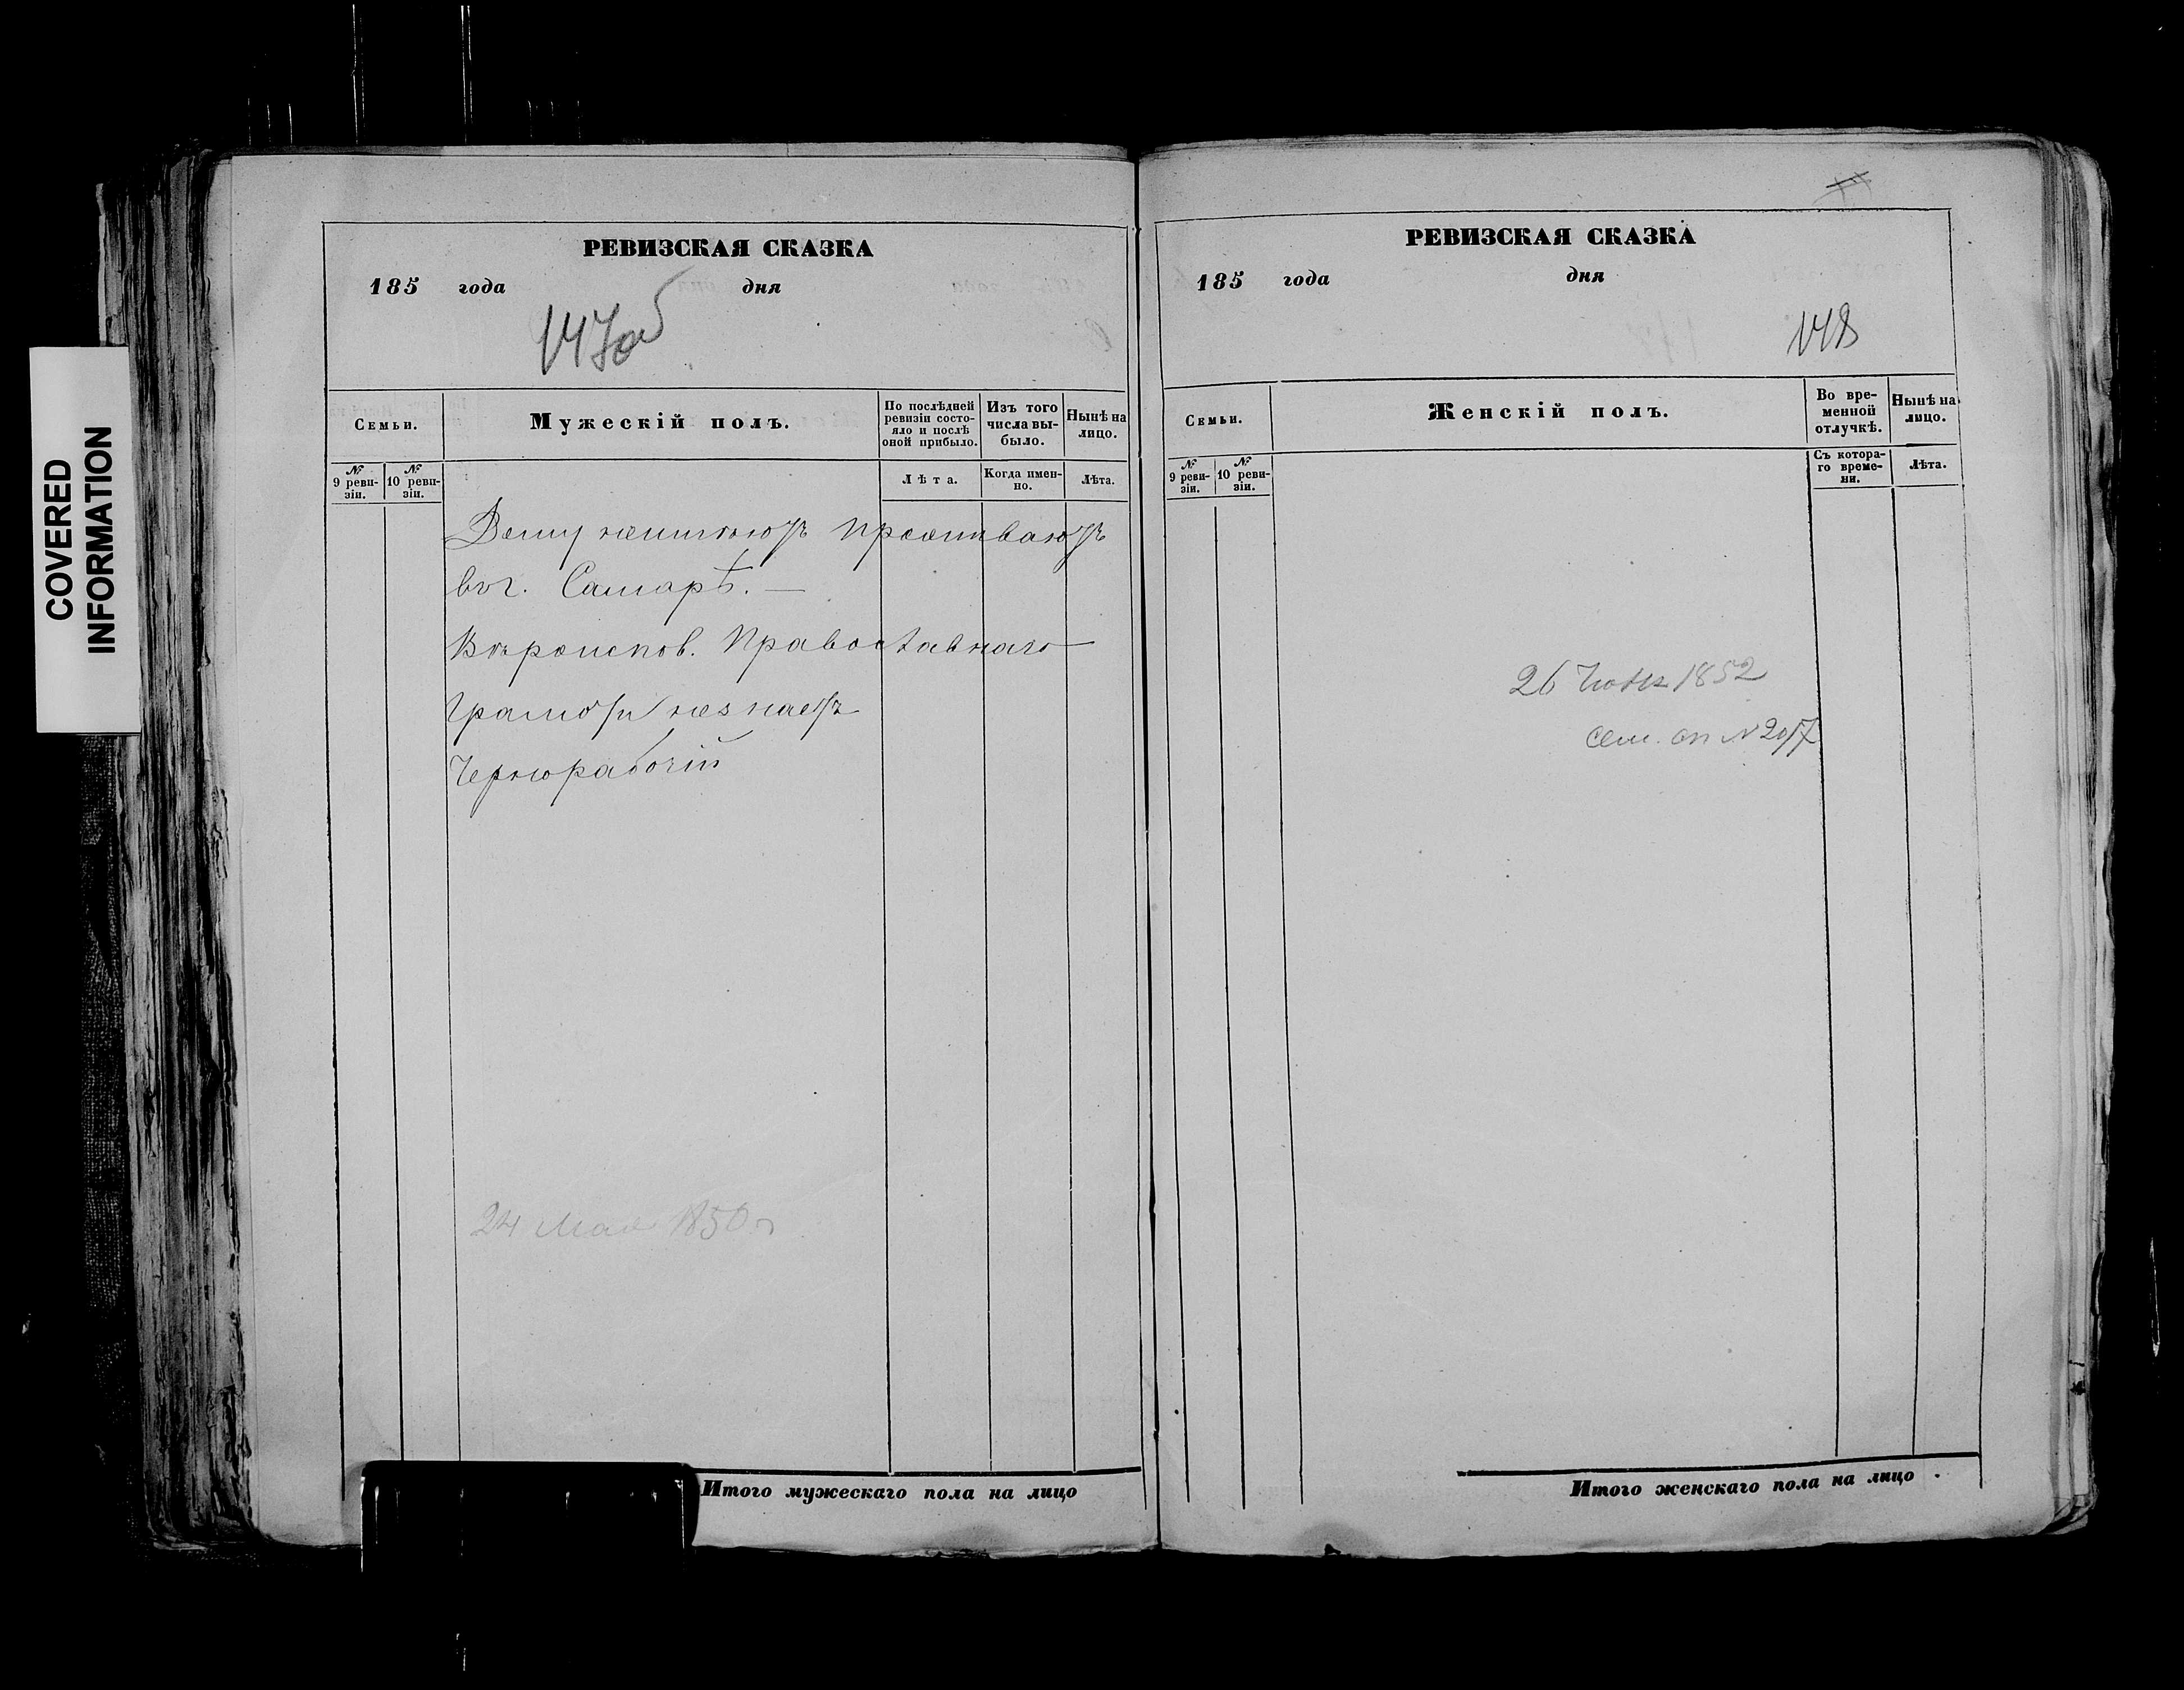 COVERED
INFORMATION
РЕВИЗСКАЯ СКАЗКА
185 года дня
147об
Семьи.
Мужескій полъ.
По послѣдней
ревизіи состо-
яло и послѣ
оной прибыло.
Изъ того
числа вы-
было.
Нынѣ на
лицо.
№
9 реви-
зіи.
№
10 реви-
зіи.
Лѣта.
Когда имен-
но.
Лѣта.
Дому неимѣютъ проживаютъ
въ г. Самарѣ. —
Вѣроиспов. Православнаго
Грамоты незнаетъ
Чернорабочій
24 Мая 1850 г
Итого мужескаго пола на лицо
РЕВИЗСКАЯ СКАЗКА
185 года дня
148
Семьи.
Женскій полъ.
Во вре-
менной
отлучкѣ.
Нынѣ на
лицо.
№
9 реви-
зіи.
№
10 реви-
зіи.
Съ котора-
го време-
ни.
Лѣта.
26 1852
сем. сп № 2017
Итого женскаго пола на лицо